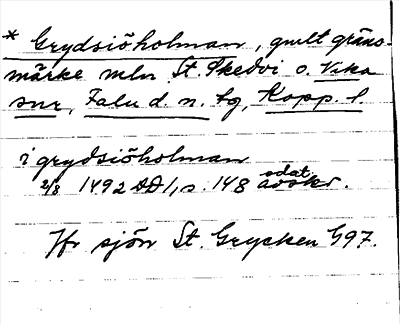 * Grydsiöholman, gmlt gräns-
märke mln St. Skedvi o. Vika
snr, Falu d. n. tg, Kopp. l.
i grydsiöholman
2/8 1492 DD 1, s. 148 odat. avskr.
Jfr sjön St. Grycken G97.